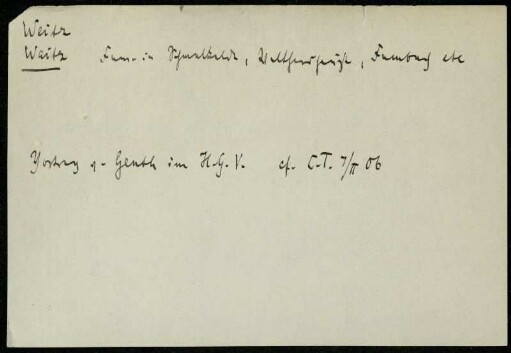 Weitz
Waitz Fam. in Schmalkalden, Walthersheigh, Fambach etc
Vortrag v. Genth im H.G.V. cf. C.T. 7/II 06